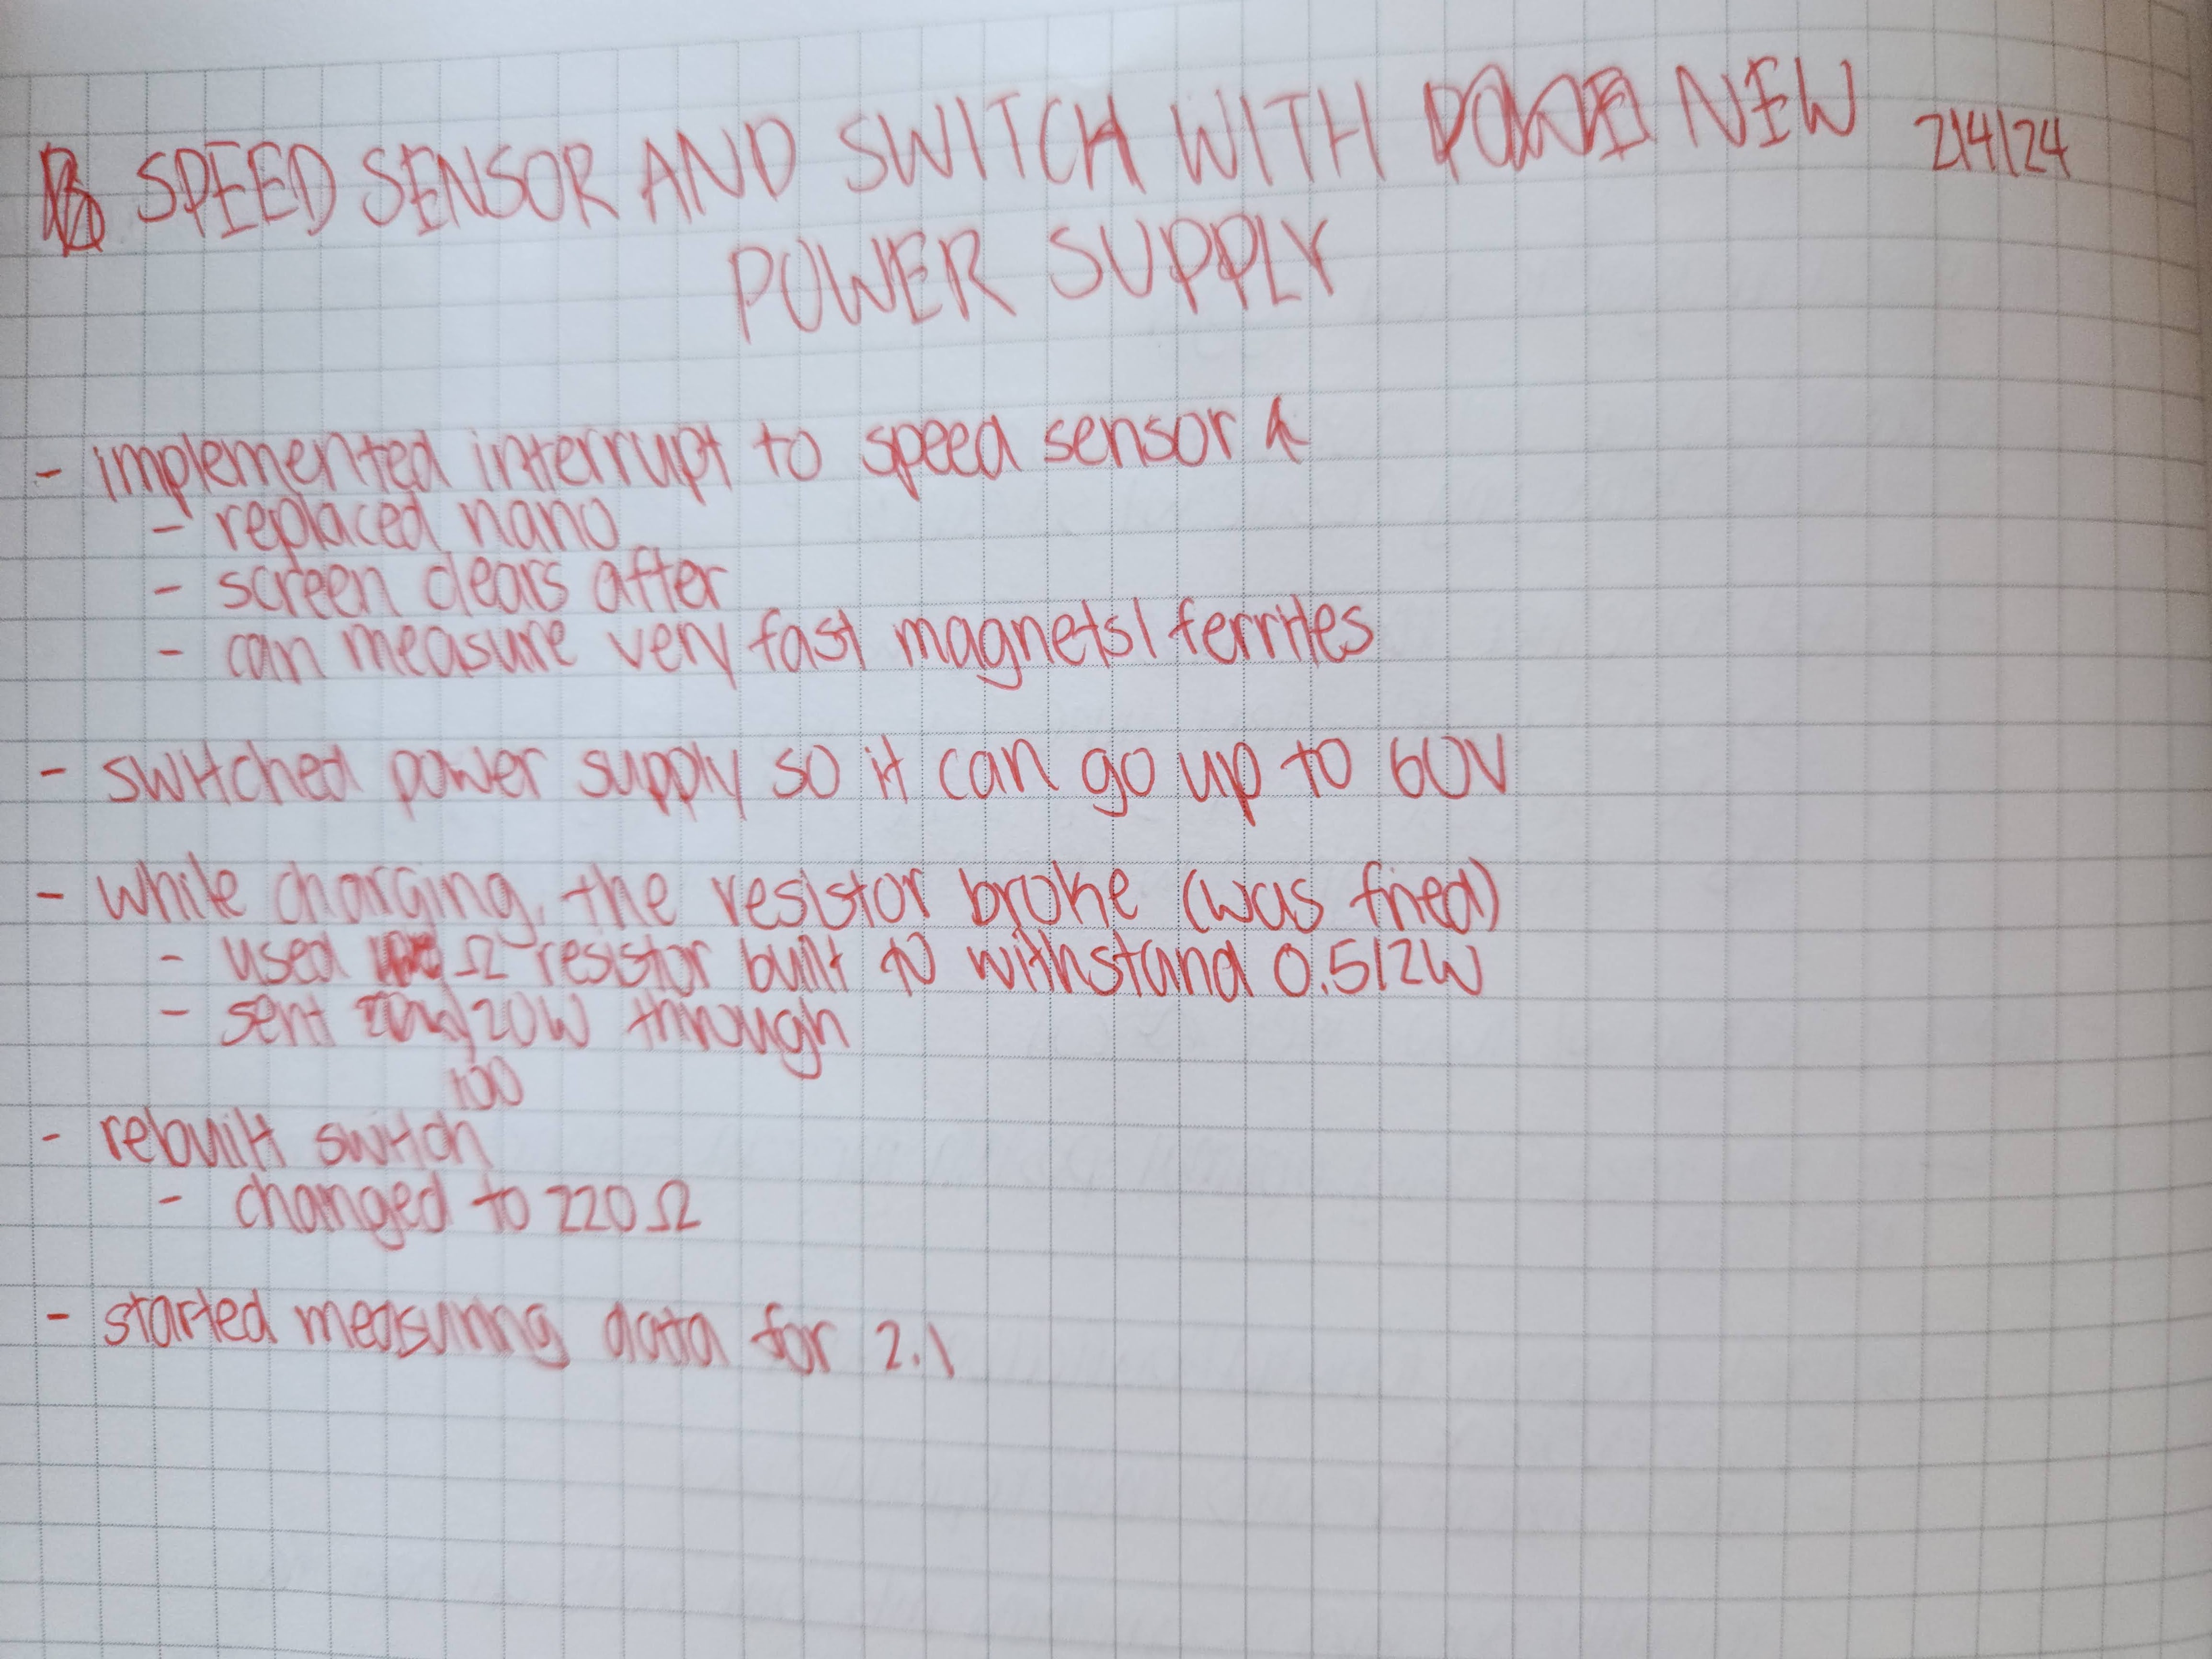 SPEED SENSOR AND SWITCH WITH NEW 2/4/24
POWER SUPPLY
- implemented interrupt to speed sensor
- replaced nano
- screen clears after
- can measure very fast magnets/ferrites
- switched power supply so it can go up to 60V
- while charging, the resistor broke (was fried)
- used Ω resistor built to withstand 0.512W
- sent 20W through
100
- rebuilt switch
- changed to 220Ω
- started measuring data for 2.1